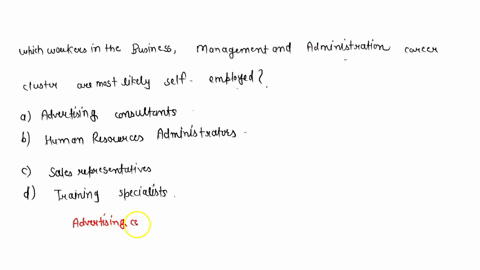 which workers in the Business, Management and Administration career
cluster are most likely self-employed?
a) Advertising consultants
b) Human Resources Administrators
c) Sales representatives
d) Training specialists.
Advertising co